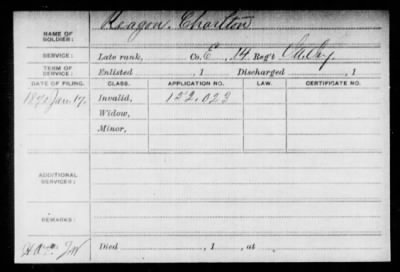 NAME OF SOLDIER: Reagon, Charlton
SERVICE: Late rank, Co. E, 14 Reg't
TERM OF SERVICE: Enlisted , 1 Discharged , 1
DATE OF FILING. CLASS. APPLICATION NO. LAW. CERTIFICATE NO.
1870 Jan 17. Invalid, 152,023
Widow,
Minor,
ADDITIONAL SERVICES:
REMARKS:
Died , 1 , at